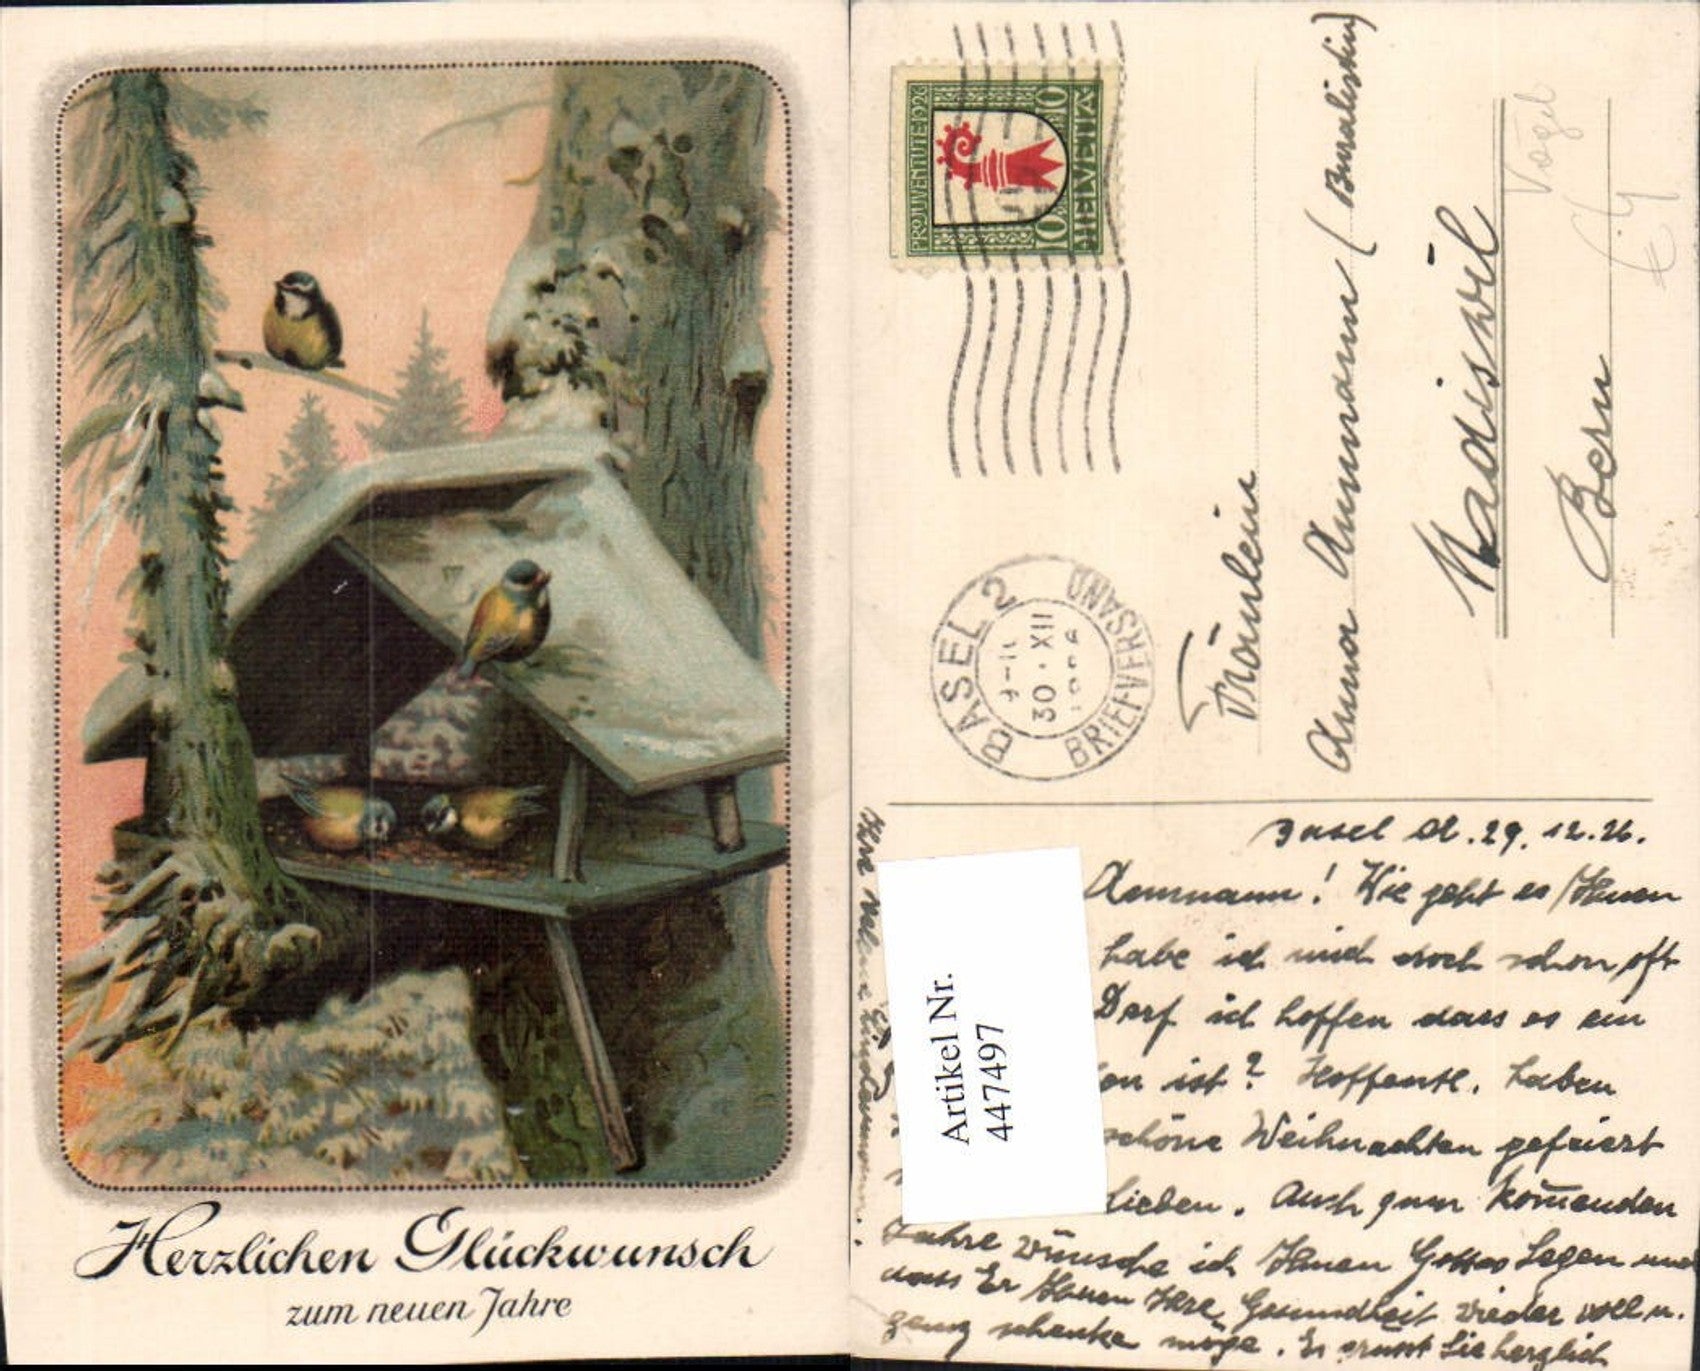 Herzlichen Glückwunsch
zum neuen Jahre
PRO JUVENTUTE 1926
10 10
HELVETIA
BASEL 2
9-11
30·XII
BRIEFVERSAND
Fräulein
Anna Ammann (Buralistin)
Madiswil
Bern
Vögel
Artikel Nr.
447497
Basel d. 29. 12. 26.
Ammann! Wie geht es Ihnen
habe ich mich doch schon oft
Darf ich hoffen dass es ein
ist? Hoffentl. haben
schöne Weihnachten gefeiert
Lieben. Auch zum kom̄enden
Jahre wünsche ich Ihnen Gottes Segen und
dass Er Ihnen Ihre Gesundheit wieder voll u.
ganz schenke möge. Es grüsst Sie herzlich
Ihre